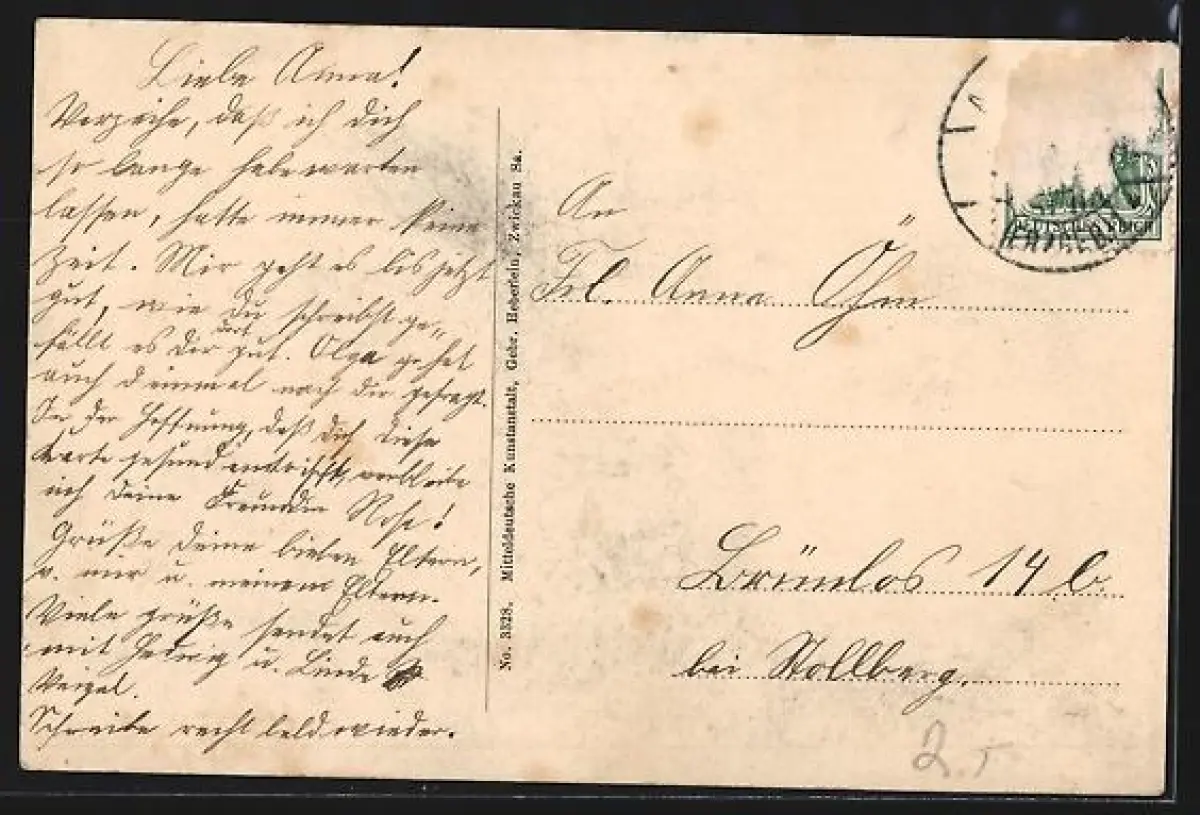 Liebe Anna!
Verzeihe, daß ich dich
so lange habe warten
lassen, hatte immer keine
Zeit. Mir geht es bis jetzt
gut, wie du schreibst ge-
fällt es dir dort gut. Olga hat
auch einmal nach dir gefragt.
In der Hoffnung, daß dich diese
Karte gesund antrifft, verbleibe
ich deine Freundin Rosa!
Grüße deine lieben Eltern,
v. mir u. meinen Eltern.
Viele Grüße sendet auch
mit Hedwig u. Linda
Schreibe recht bald wieder.
No. 3328. Mitteldeutsche Kunstanstalt, Gebr. Heberlein, Zwickau Sa.
DEUTSCHES REICH
An
Frl. Anna Öhm
Brünlos 14 b.
bei Stollberg.
2.